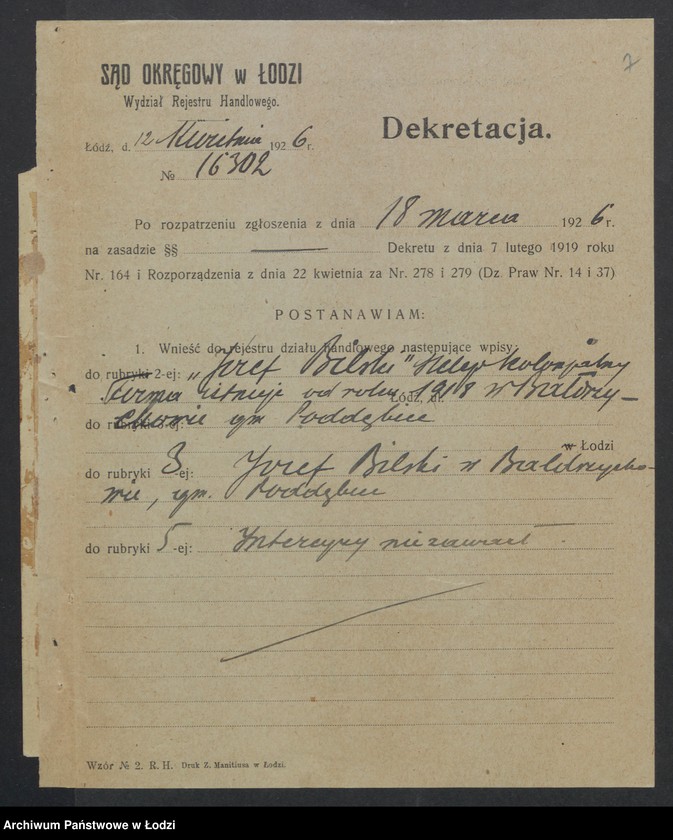 7
SĄD OKRĘGOWY w ŁODZI
Wydział Rejestru Handlowego.
Dekretacja.
Łódź, d. 12 Kwietnia 1926 r.
№ 16302
Po rozpatrzeniu zgłoszenia z dnia 18 marca 1926 r.
na zasadzie §§ — Dekretu z dnia 7 lutego 1919 roku
Nr. 164 i Rozporządzenia z dnia 22 kwietnia za Nr. 278 i 279 (Dz. Praw Nr. 14 i 37)
POSTANAWIAM:
1. Wnieść do rejestru działu handlowego następujące wpisy:
do rubryki 2-ej: „Józef Bilski" Sklep kolonjalny
Firma istnieje od roku 1918 w Bałdrzy-
Łódź, ul.
do rubryki chowie gm Poddębice
w Łodzi
do rubryki 3-ej: Józef Bilski w Bałdrzycho-
wie, gm. Poddębice
do rubryki 5-ej: Intercyzy niezawarł.
Wzór № 2. R. H. Druk Z. Manitiusa w Łodzi.
Archiwum Państwowe w Łodzi